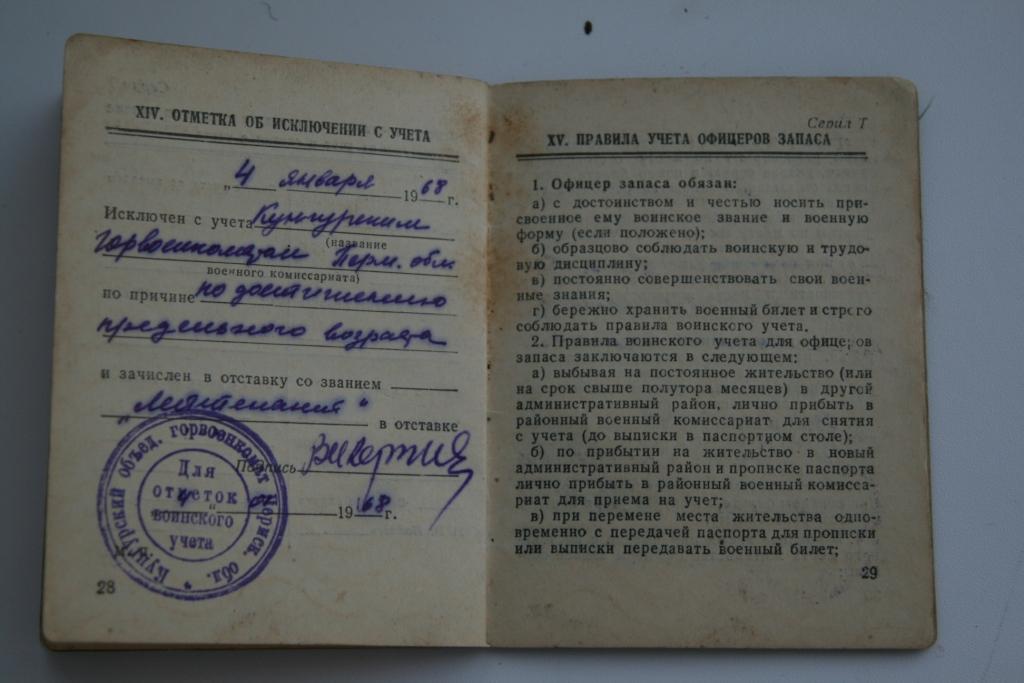 XIV. ОТМЕТКА ОБ ИСКЛЮЧЕНИИ С УЧЕТА
„ 4 января 1968 г.
Исключен с учета Кунгурским
(название
горвоенкоматом Перм. обл.
военного комиссариата)
по причине по достижению
предельного возраста
и зачислен в отставку со званием
„Лейтенант" в отставке
Подпись
„ 4 " 1968 г.
Кунгурский объед. горвоенкомат Пермск. обл.
Для
отметок
воинского
учета
28
Серия Т
XV. ПРАВИЛА УЧЕТА ОФИЦЕРОВ ЗАПАСА
1. Офицер запаса обязан:
а) с достоинством и честью носить при-
своенное ему воинское звание и военную
форму (если положено);
б) образцово соблюдать воинскую и трудо-
вую дисциплину;
в) постоянно совершенствовать свои воен-
ные знания;
г) бережно хранить военный билет и строго
соблюдать правила воинского учета.
2. Правила воинского учета для офицеров
запаса заключаются в следующем:
а) выбывая на постоянное жительство (или
на срок свыше полутора месяцев) в другой
административный район, лично прибыть в
районный военный комиссариат для снятия
с учета (до выписки в паспортном столе);
б) по прибытии на жительство в новый
административный район и прописке паспорта
лично прибыть в районный военный комисса-
риат для приема на учет;
в) при перемене места жительства одно-
временно с передачей паспорта для прописки
или выписки передавать военный билет;
29